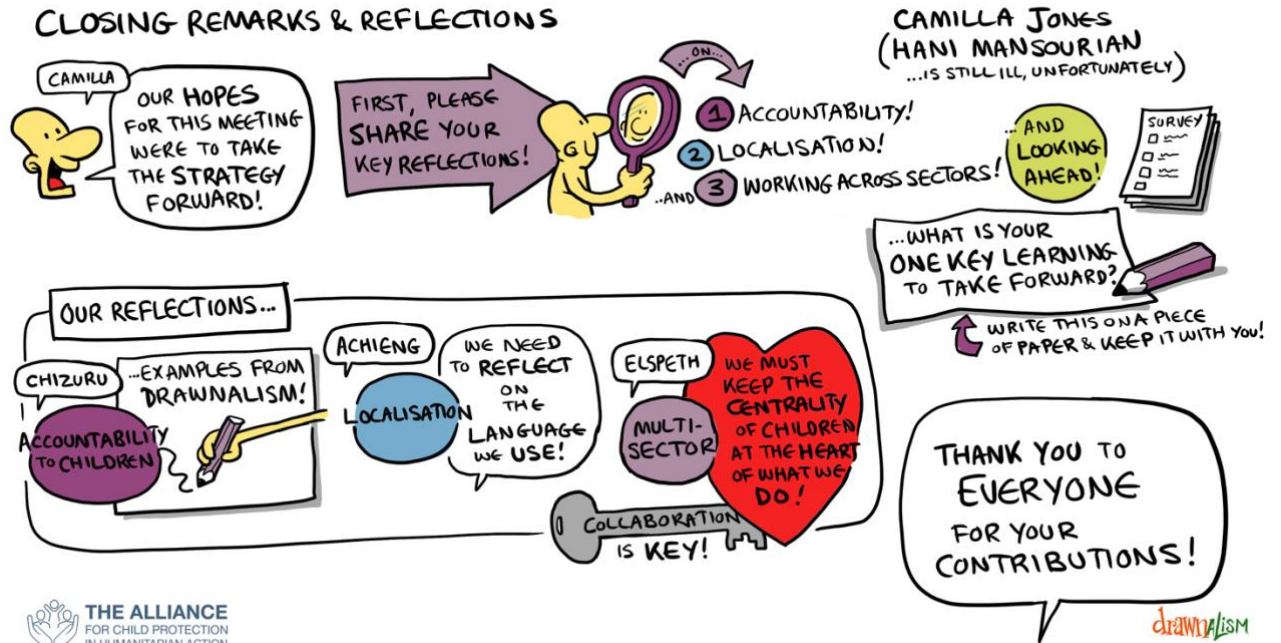 CLOSING REMARKS & REFLECTIONS
CAMILLA
OUR HOPES
FOR THIS MEETING
WERE TO TAKE
THE STRATEGY
FORWARD!
FIRST, PLEASE
SHARE YOUR
KEY REFLECTIONS!
...ON...
1 ACCOUNTABILITY!
2 LOCALISATION!
...AND 3 WORKING ACROSS SECTORS!
CAMILLA JONES
(HANI MANSOURIAN
...IS STILL ILL, UNFORTUNATELY)
...AND
LOOKING
AHEAD!
SURVEY
...WHAT IS YOUR
ONE KEY LEARNING
TO TAKE FORWARD?
WRITE THIS ON A PIECE
OF PAPER & KEEP IT WITH YOU!
OUR REFLECTIONS...
CHIZURU
ACCOUNTABILITY
TO CHILDREN
...EXAMPLES FROM
DRAWNALISM!
ACHIENG
LOCALISATION
WE NEED
TO REFLECT
ON
THE
LANGUAGE
WE USE!
ELSPETH
MULTI-
SECTOR
WE MUST
KEEP THE
CENTRALITY
OF CHILDREN
AT THE HEART
OF WHAT WE
DO!
COLLABORATION
IS KEY!
THANK YOU TO
EVERYONE
FOR YOUR
CONTRIBUTIONS!
THE ALLIANCE
FOR CHILD PROTECTION
IN HUMANITARIAN ACTION
drawnalism